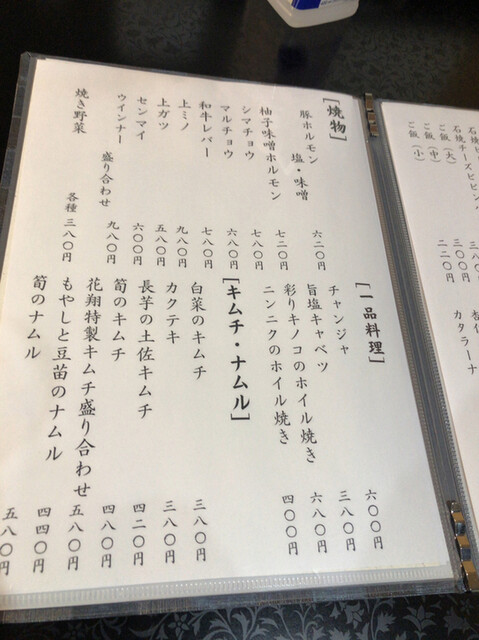 [焼物]
豚ホルモン 塩・味噌 六二〇円
柚子味噌ホルモン 七二〇円
シマチョウ 七八〇円
マルチョウ 六八〇円
和牛レバー 七八〇円
上ミノ 九八〇円
上ガツ 五八〇円
センマイ 六〇〇円
ウインナー 盛り合わせ 九八〇円
焼き野菜 各種 三八〇円
[一品料理]
チャンジャ 六〇〇円
旨塩キャベツ 三八〇円
彩りキノコのホイル焼き 六八〇円
ニンニクのホイル焼き 四〇〇円
[キムチ・ナムル]
白菜のキムチ 三八〇円
カクテキ 三八〇円
長芋の土佐キムチ 四二〇円
筍のキムチ 四八〇円
花翔特製キムチ盛り合わせ 五八〇円
もやしと豆苗のナムル 四四〇円
筍のナムル 五八〇円
石焼チーズビビン
ご飯(大)
ご飯(中)
ご飯(小)
カタラーナ